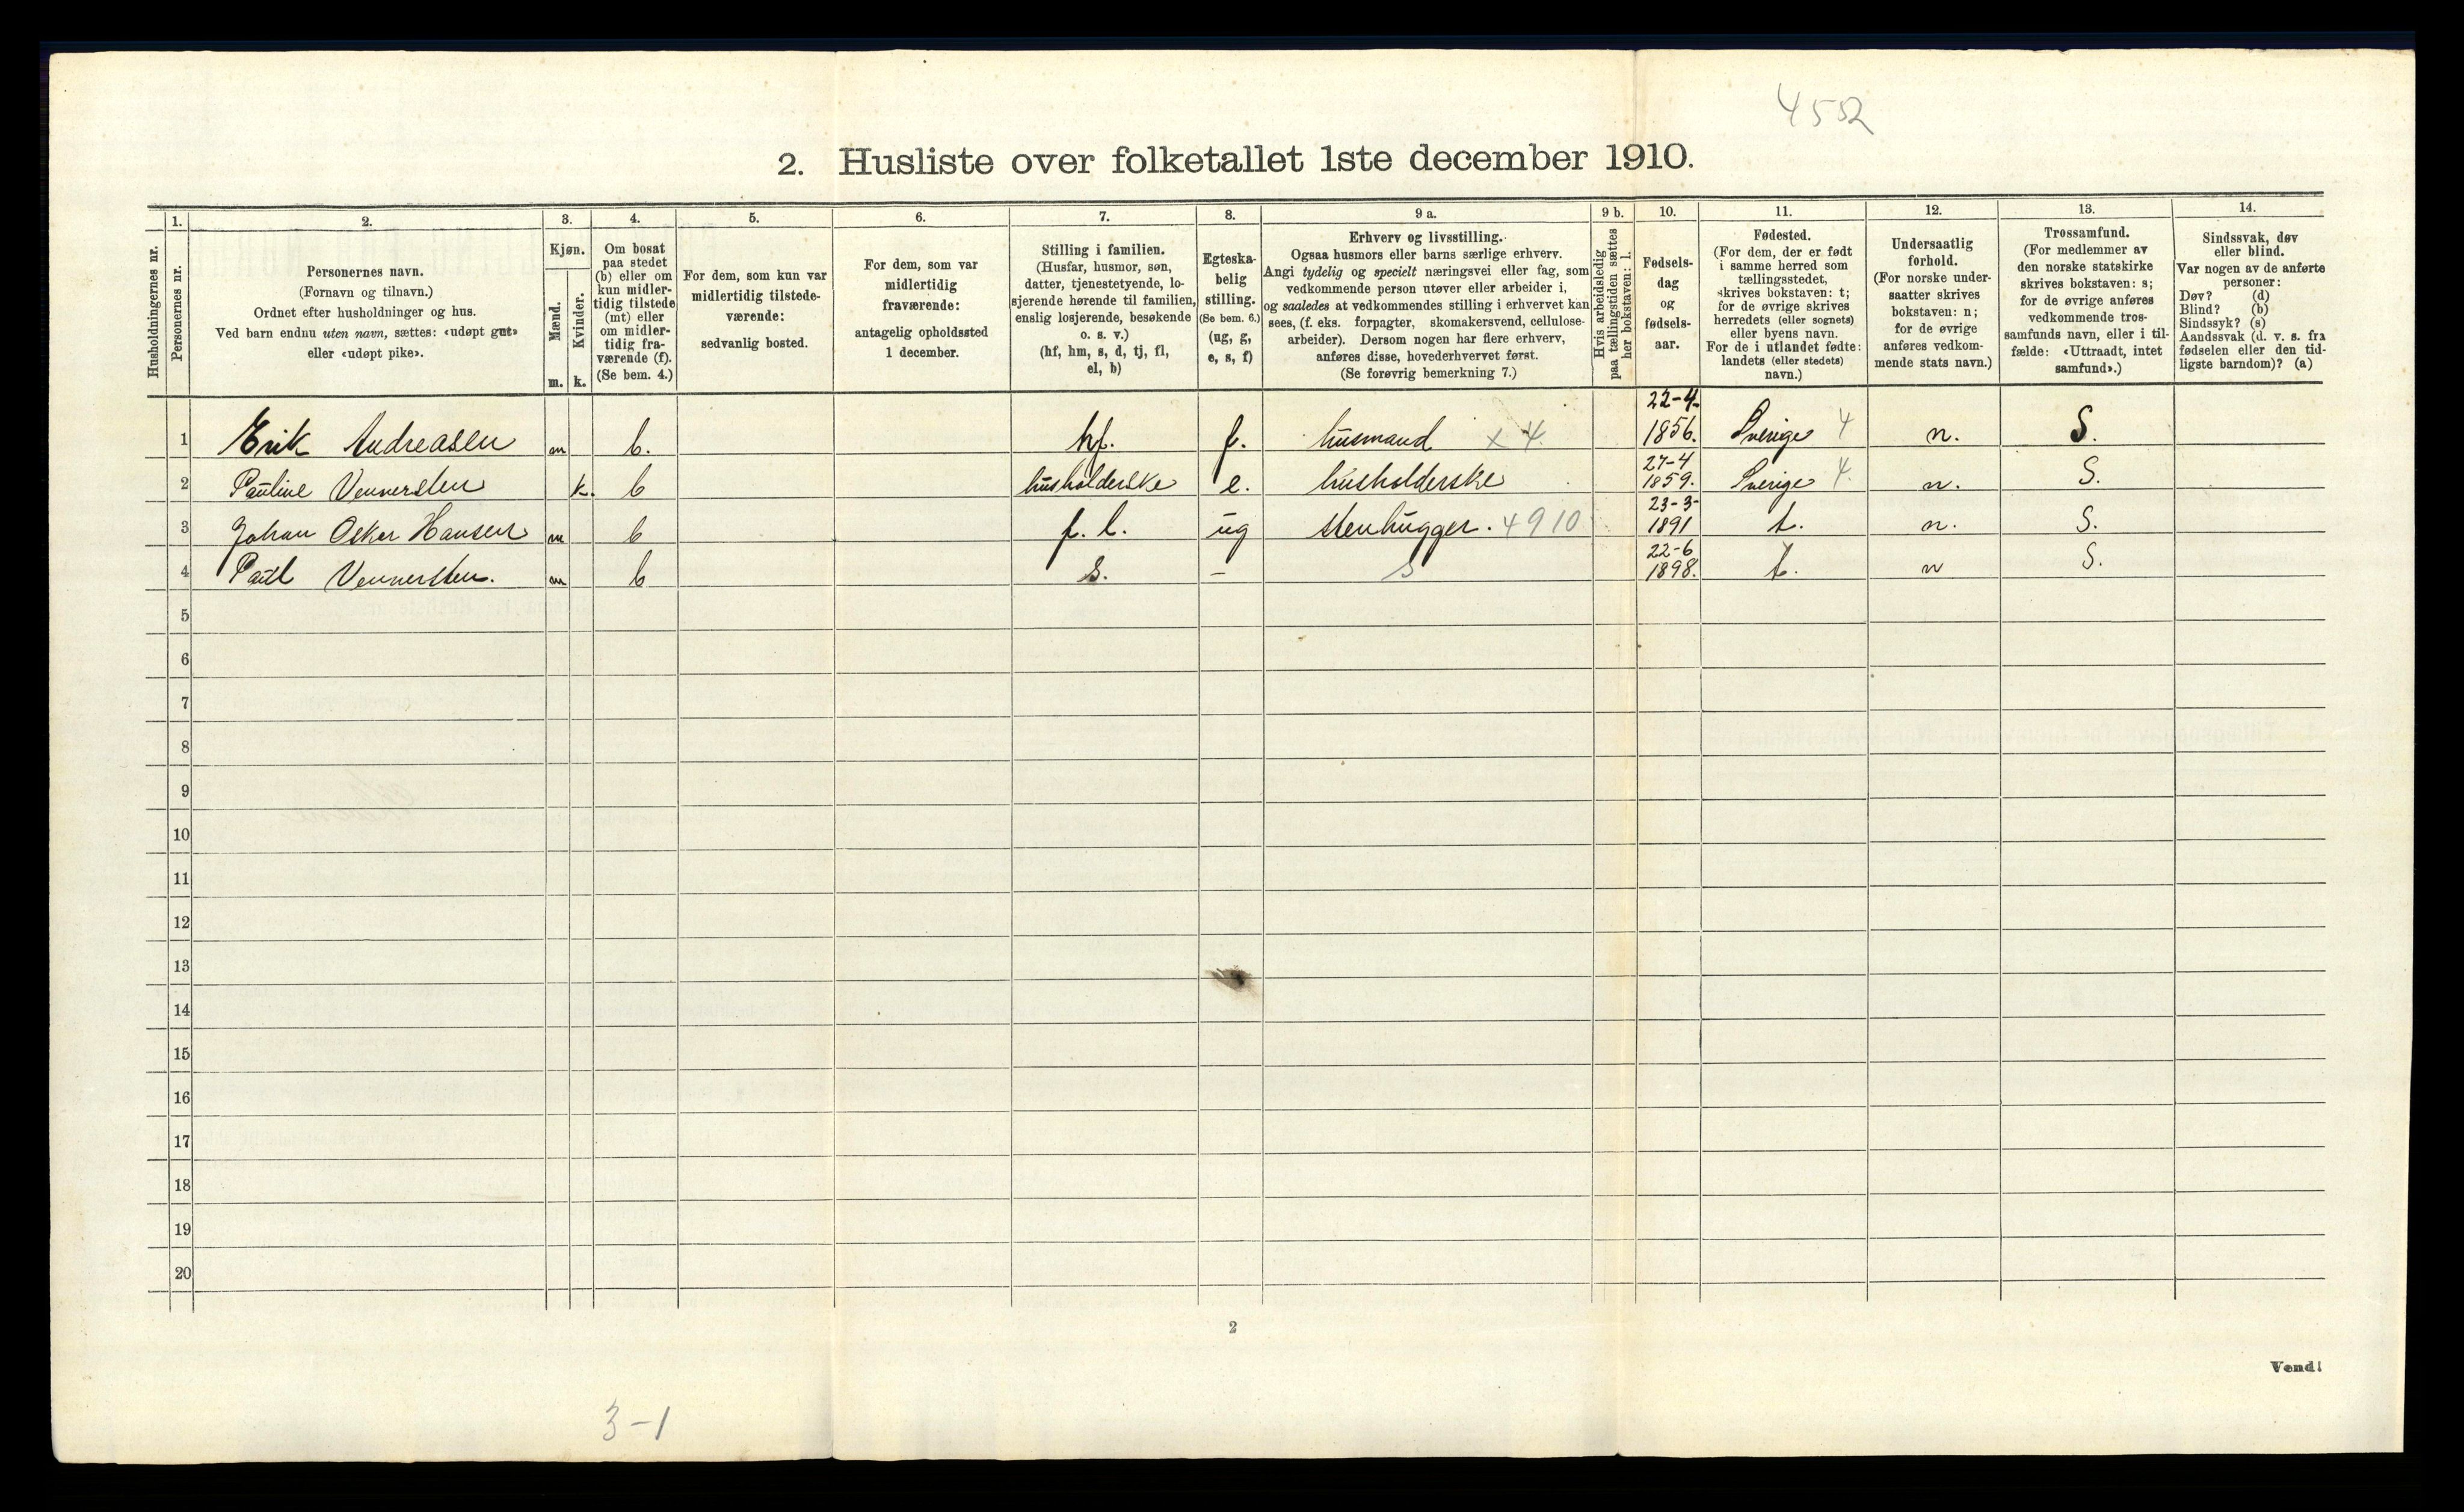 4552
2. Husliste over folketallet 1ste december 1910.
Husholdningernes nr.
1.
Personernes nr.
2.
Personernes navn.
(Fornavn og tilnavn.)
Ordnet efter husholdninger og hus.
Ved barn endnu uten navn, sættes: «udøpt gut»
eller «udøpt pike».
3.
Kjøn.
Mænd.
Kvinder.
m. k.
4.
Om bosat
paa stedet
(b) eller om
kun midler-
tidig tilstede
(mt) eller
om midler-
tidig fra-
værende (f).
(Se bem. 4.)
5.
For dem, som kun var
midlertidig tilstede-
værende:
sedvanlig bosted.
6.
For dem, som var
midlertidig
fraværende:
antagelig opholdssted
1 december.
7.
Stilling i familien.
(Husfar, husmor, søn,
datter, tjenestetyende, lo-
sjerende hørende til familien,
enslig losjerende, besøkende
o. s. v.)
(hf, hm, s, d, tj, fl,
el, b)
8.
Egteska-
belig
stilling.
(Se bem. 6.)
(ug, g,
e, s, f)
9 a.
Erhverv og livsstilling.
Ogsaa husmors eller barns særlige erhverv.
Angi tydelig og specielt næringsvei eller fag, som
vedkommende person utøver eller arbeider i,
og saaledes at vedkommendes stilling i erhvervet kan
sees, (f. eks. forpagter, skomakersvend, cellulose-
arbeider). Dersom nogen har flere erhverv,
anføres disse, hovederhvervet først.
(Se forøvrig bemerkning 7.)
9 b.
Hvis arbeidsledig
paa tællingstiden sættes
her bokstaven: l.
10.
Fødsels-
dag
og
fødsels-
aar.
11.
Fødested.
(For dem, der er født
i samme herred som
tællingsstedet,
skrives bokstaven: t;
for de øvrige skrives
herredets (eller sognets)
eller byens navn.
For de i utlandet fødte:
landets (eller stedets)
navn.)
12.
Undersaatlig
forhold.
(For norske under-
saatter skrives
bokstaven: n;
for de øvrige
anføres vedkom-
mende stats navn.)
13.
Trossamfund.
(For medlemmer av
den norske statskirke
skrives bokstaven: s;
for de øvrige anføres
vedkommende tros-
samfunds navn, eller i til-
fælde: «Uttraadt, intet
samfund».)
14.
Sindssvak, døv
eller blind.
Var nogen av de anførte
personer:
Døv? (d)
Blind? (b)
Sindssyk? (s)
Aandssvak (d. v. s. fra
fødselen eller den tid-
ligste barndom)? (a)
1 Erik Andreasen m b. hf. f. husmand x 4. 22-4. 1856. Sverige 4 n. S.
2 Pauline Vennersten k. b husholderske e. husholderske 27-4 1859. Sverige 4. n. S.
3 Johan Oskar Hansen m b f. l. ug stenhugger. 4910 23-3- 1891 t. n. S.
4 Paul Vennersten. m b s. - S 22-6 1898. t. n S.
5
6
7
8
9
10
11
12
13
14
15
16
17
18
19
20
2
Vend!
3-1